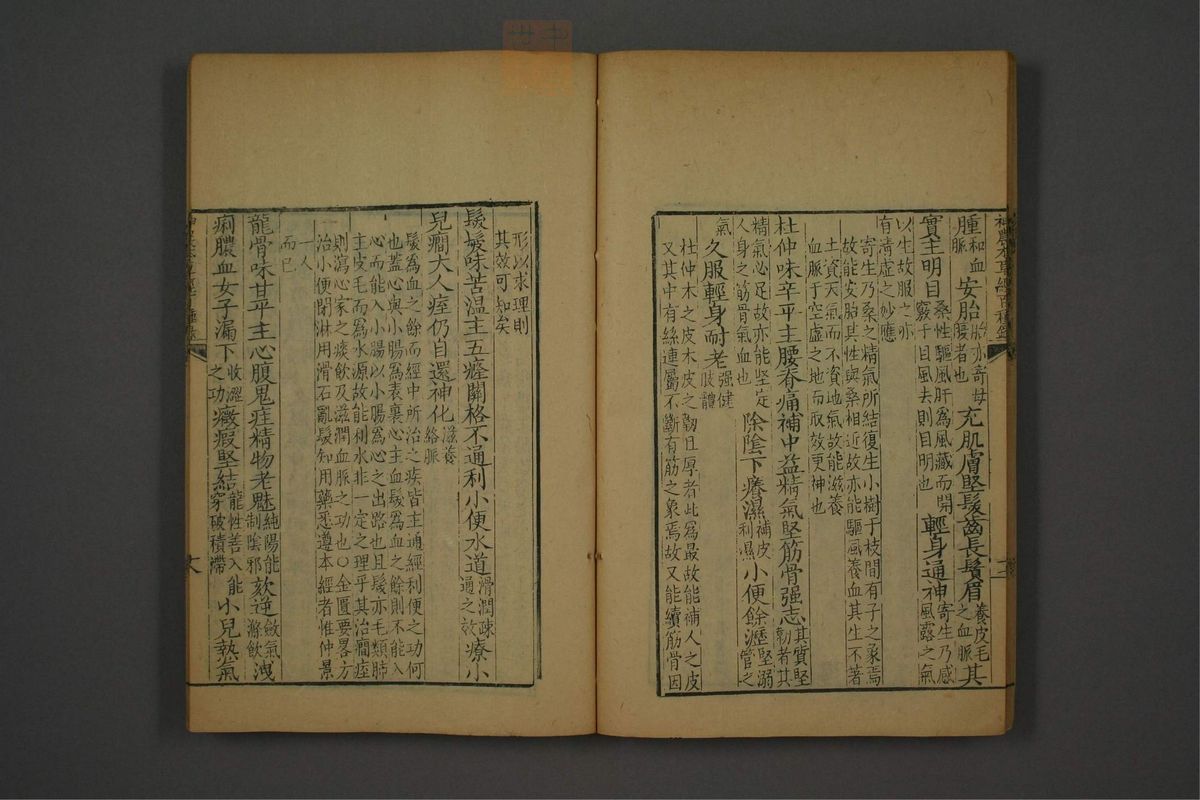 神農本草經百種錄
腫和血脈安胎胎亦寄母腹者也充肌膚堅髮齒長鬚眉養皮毛之血脈其
實主明目桑性驅風肝爲風藏而開竅于目風去則目明也輕身通神寄生乃感風露之氣
以生故服之亦有清虛之妙應
寄生乃桑之精氣所結復生小樹于枝間有子之象焉
故能安胎其性與桑相近故亦能驅風養血其生不著
土資天氣而不資地氣故能滋養
血脈于空虛之地而取效更神也
杜仲味辛平主腰脊痛補中益精氣堅筋骨强志其質堅韌者其
精氣必足故亦能堅定人身之筋骨氣血也除陰下癢濕補皮利濕小便餘瀝堅溺管之
氣久服輕身耐老强健肢體
杜仲木之皮木皮之韌且厚者此爲最故能補人之皮
又其中有絲連屬不斷有筋之象焉故又能續筋骨因
形以求理則
其效可知矣
髮髲味苦温主五癃關格不通利小便水道滑潤疎通之效療小
兒癇大人痓仍自還神化滋養絡脈
髮爲血之餘而經中所治之疾皆主通經利便之功何
也蓋心與小腸爲表裏心主血髮爲血之餘則不能入
心而能入小腸以小腸爲心之出路也且髮亦毛類肺
主皮毛而爲水源故能利水非一定之理乎其治癎痓
則瀉心家之痰飲及滋潤血脈之功也〇金匱要畧方
治小便閉淋用滑石亂髮知用藥悉遵本經者惟仲景
一人
而已
龍骨味甘平主心腹鬼疰精物老魅純陽能制陰邪欬逆斂氣滌飲洩
痢膿血女子漏下收澀之功癥瘕堅結龍性善入能穿破積滯小兒熱氣